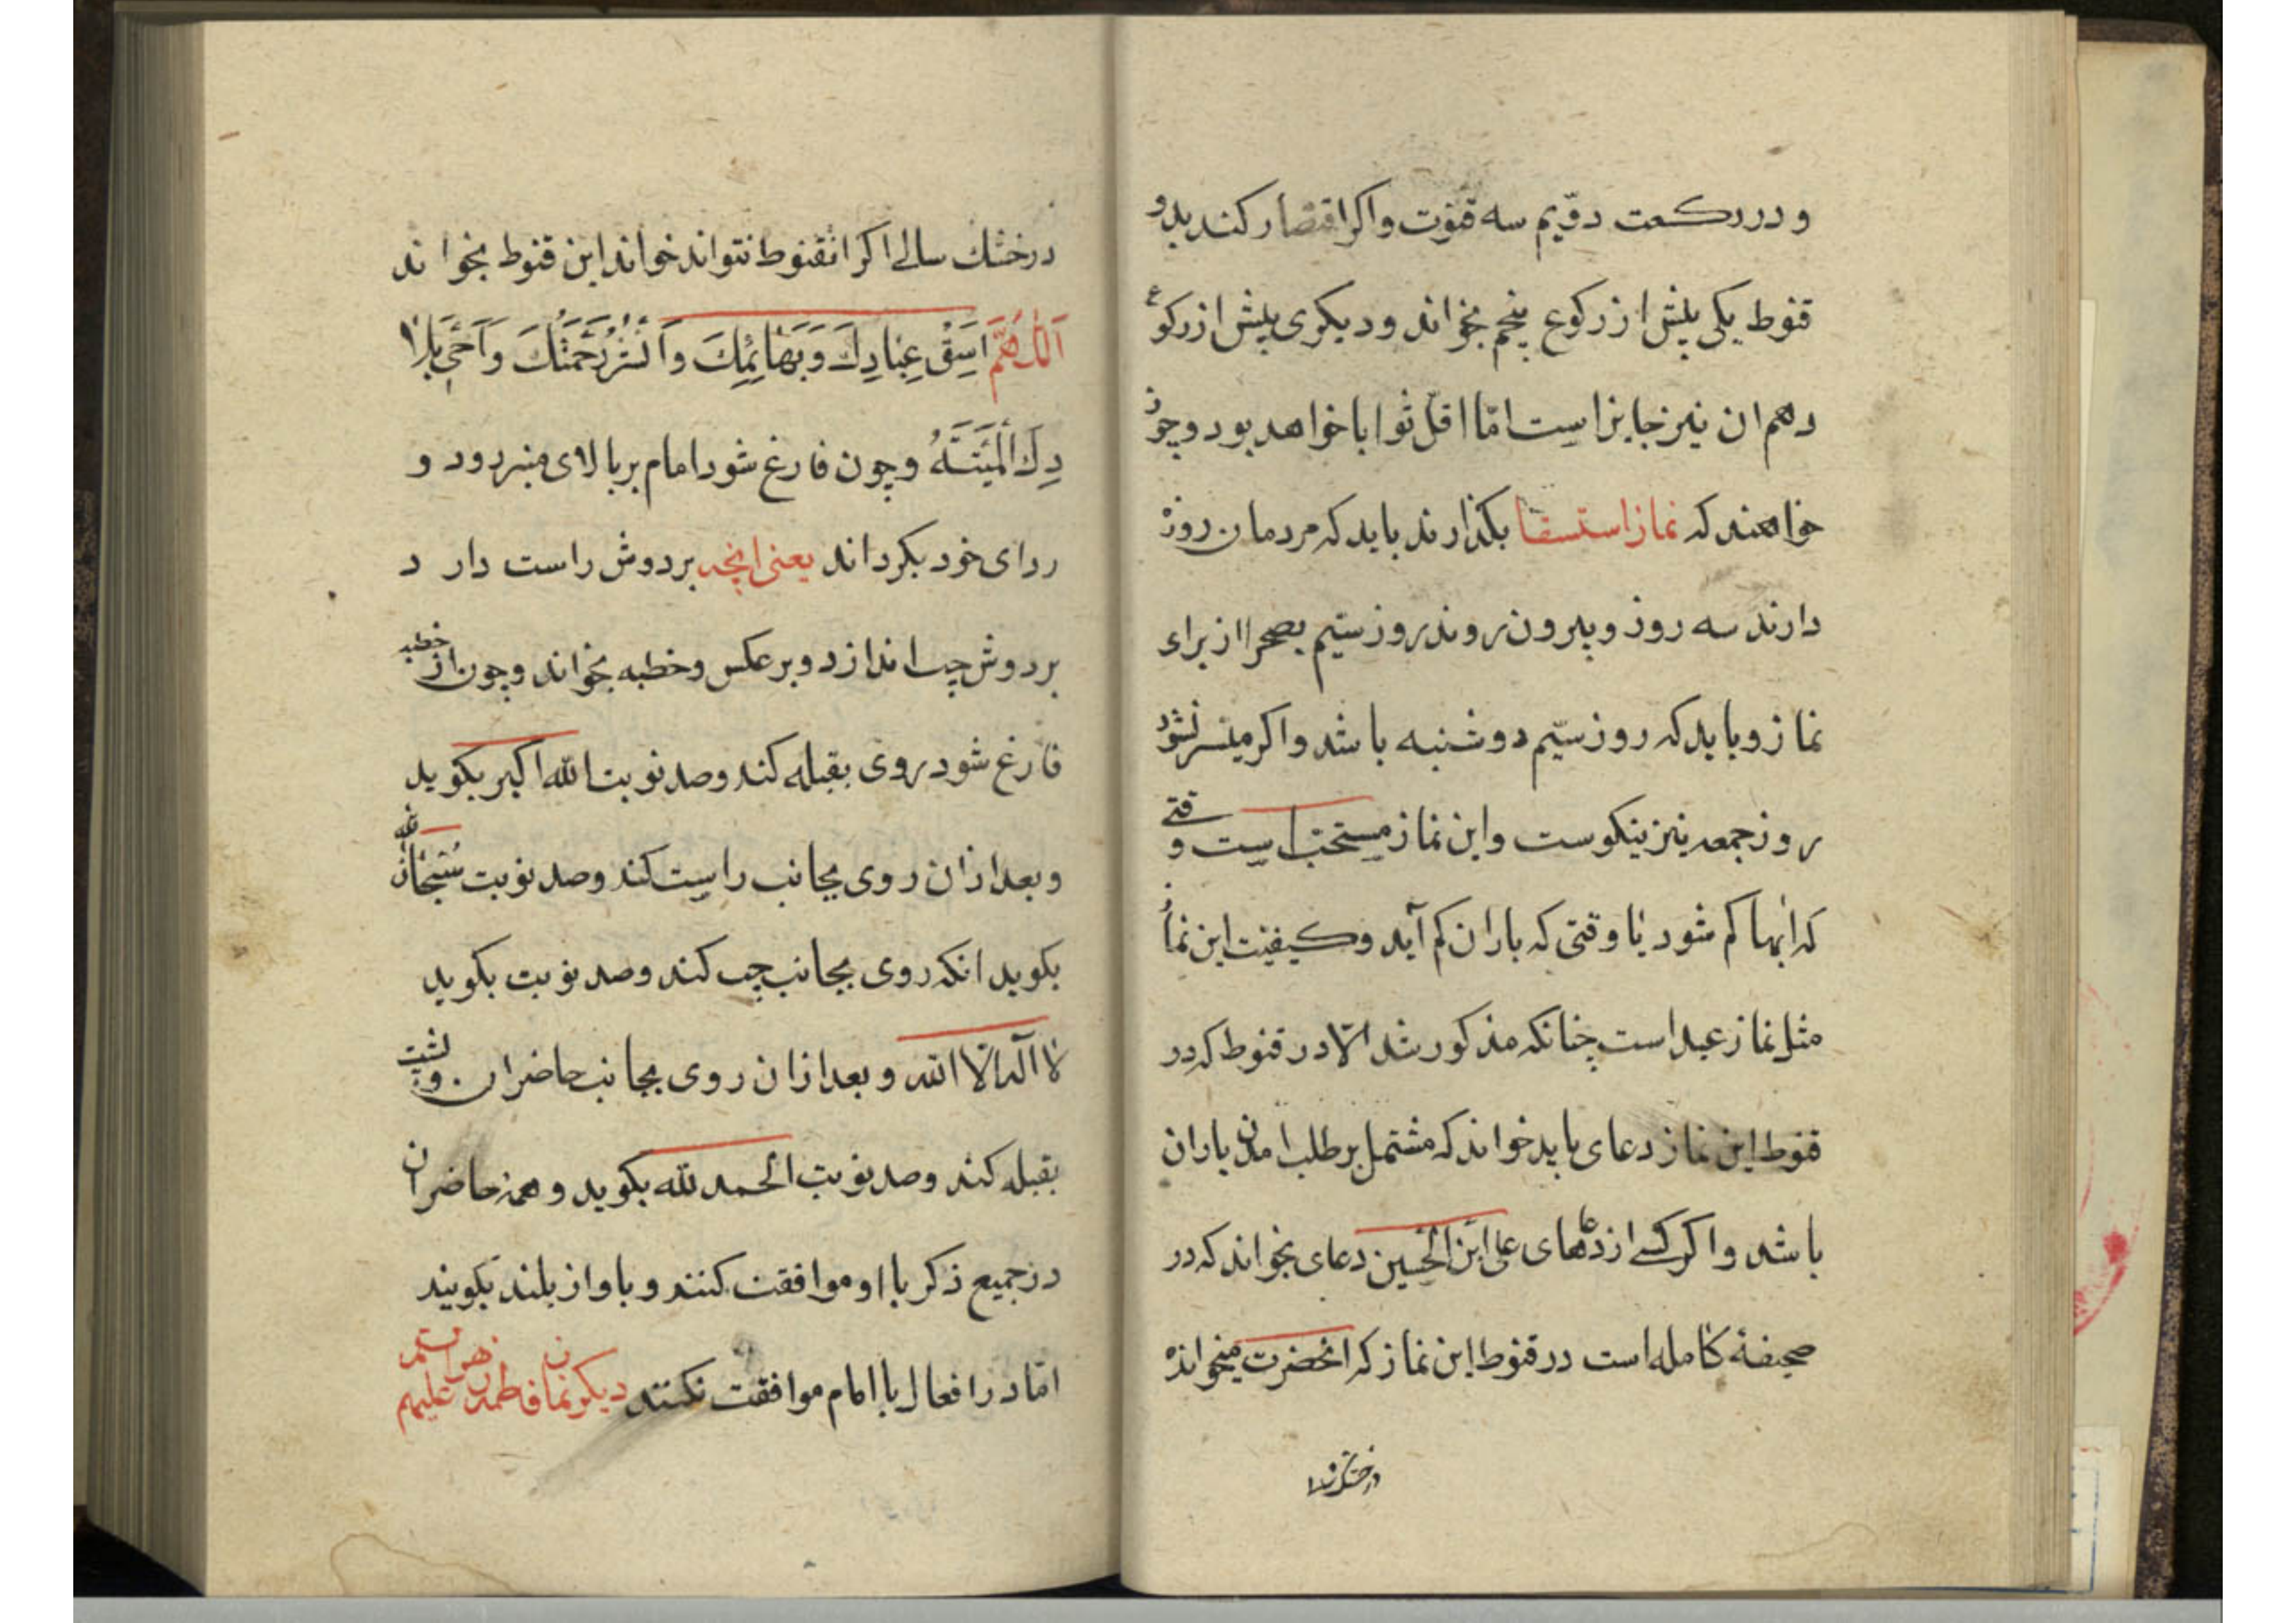 و در رکعت دوّیم سه قنوت واکر اقتصار کند بدو
قنوط یکی پیش از رکوع پنجم بخواند ودیکری پیش ازرکوع
دهم ان نیز جایز است امّا اقلّ ثوابا خواهد بود وچون
خواهند که نماز استسقا بکذارند باید که مردمان روزه
دارند سه روز و بیرون روند روز سیّم بصحرا از برای
نماز و باید که روز سیّم دوشنبه باشد واکر میسر نشود
روز جمعه نیز نیکوست واین نماز مستحبّ است وقتی
که ابها کم شود یا وقتی که باران کم آید وکیفیّت این نماز
مثل نماز عید است چنانکه مذکور شد الّا در قنوط که در
قنوط این نماز دعای باید خواند که مشتمل بر طلب امدن باران
باشد واکر کسی از دعاهای علی ابن الحسین دعای بخواند که در
صحیفهٔ کامله است در قنوط این نماز که انحضرت میخوانده
درخشک سالی اکر انقنوط نتواند خواند این قنوط بخواند
اَللّٰهُمَّ اسَقِ عِبٰادِكَ وَبَهٰائِمَكَ وَاَنْشُرْ رَحْمَتَكَ وَاَحْیِ بَلا
دِكَ الْمَیِّتَةُ وچون فارغ شود امام بر بالای منبر رود و
ردای خود بکرداند یعنی انچه بر دوش راست دارد
بر دوش چپ اندازد و بر عکس وخطبه بخواند وچون از خطبه
فارغ شود روی بقبله کند وصد نوبت الله اکبر بکوید
وبعد ازان روی بجانب راست کند وصد نوبت سُبْحٰانَ الله
بکوید انکه روی بجانب چپ کند وصد نوبت بکوید
لا اله الّا الله وبعد ازان روی بجانب حاضران وپشت
بقبله کند وصد نوبت الحمد لله بکوید وهمه حاضران
در جمیع ذکر با او موافقت کنند وباواز بلند بکویند
امّا در افعال با امام موافقت نکنند دیکر نماز فاطمه زهراست علیهم